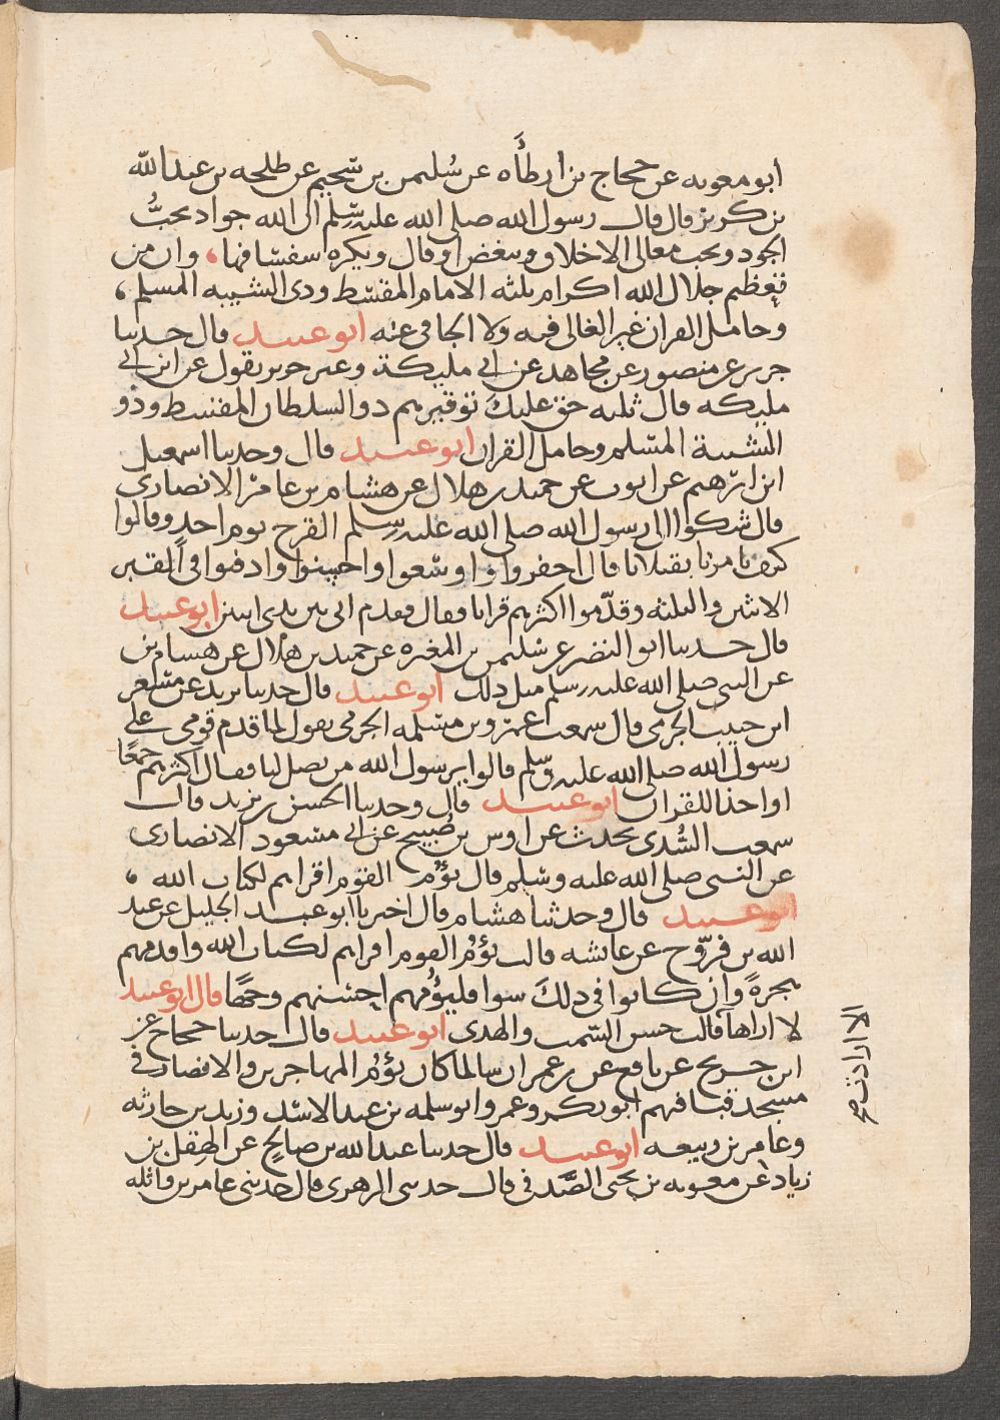 ابو معويه عن حجاج بن ارطأه عن سُليمن بن سُحيم عن طلحه بن عبدالله
بن كريز قال قال رسول الله صلى الله عليه وسلم ان الله جواد يحبُّ
الجود ويحب معالى الاخلاق ويبغض او قال ويكره سفسافها، وان من
تعظيم جلال الله اكرام ثلثه الامام المقسط وذى الشيبه المسلم،
وحامل القران غير الغالى فيه ولا الجافى عنه ابو عبيد قال حدثنا
جرير عن منصور عن مجاهد عن ابى مليكة وغير جرير يقول عن ابن ابى
مليكه قال ثلثه حق عليك توقيرهم ذو السلطان المقسط وذو
الشيبة المسلم وحامل القران ابو عبيد قال وحدثنا اسمعيل
ابن ابرهيم عن ايوب عن حميد بن هلال عن هشام بن عامر الانصارى
قال شكوا الى رسول الله صلى الله عليه وسلم القرح يوم احد وقالوا
كيف تامرنا بقتلانا قال احفروا واوسعوا واحسنوا وادفنوا فى القبر
الاثنين والثلثه وقدّموا اكثرهم قرانا قال فقدم ابى بين يدى اثنين ابو عبيد
قال حدثنا ابو النضر عن سليمن بن المغيره عن حميد بن هلال عن هشام بن
عن النبى صلى الله عليه وسلم مثل ذلك ابو عبيد قال حدثنا يزيد عن مسعر
ابن حبيب الجرمى قال سمعت عمرو بن سلمه الجرمى يقول لما قدم قومى على
رسول الله صلى الله عليه وسلم قالوا يرسول الله من يصل لنا فقال اكثرهم جمعًا
او اخذا للقران ابو عبيد قال وحدثنا الحسن بن يزيد قال
سمعت السُّدى يحدث عن اوس بن ضُبيح عن ابى مسعود الانصارى
عن النبى صلى الله عليه وسلم قال يؤم القوم اقراهم لكتاب الله،
ابو عبيد قال وحدثنا هشام قال اخبرنا ابو عبد الجليل عن عبد
الله بن فرّوخ عن عائشه قالت يؤمُ القوم اقراهم لكتاب الله واقدمهم
هجرةً وان كانوا فى ذلك سوا فليؤُمهم احسنهم وجهًا قال ابو عبيد
لا اراها قالت حسن السمت والهدى ابو عبيد قال حدثنا حجاج عن
ابن جريج عن نافع عن بن عمر ان سالما كان يؤمُ المهاجرين والانصار فى
مسجد قبا فيهم ابو بكر وعمر وابو سلمه بن عبد الاسد وزيد بن حارثه
وعامر بن ربيعه ابو عبيد قال حدثنا عبدالله بن صالح عن الهِقل بن
زياد عن معويه بن يحيى الصَّدفى قال حدثنى الزهرى قال حدثنى عامر بن واثله
الا ارادت صح